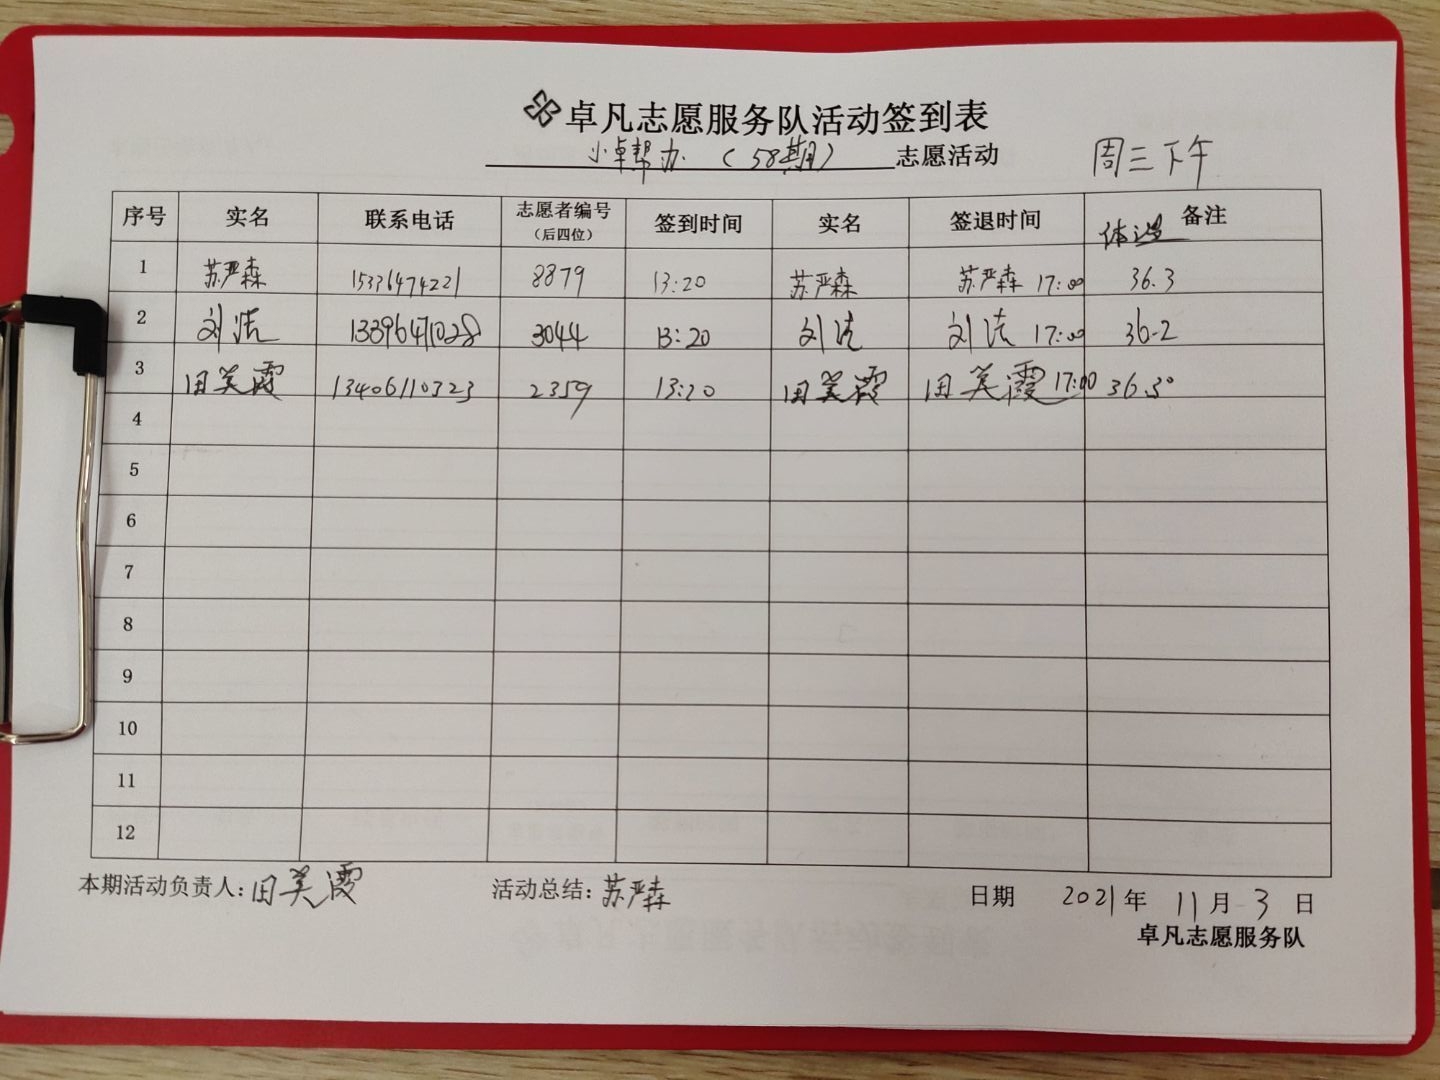 卓凡志愿服务队活动签到表
小卓帮办(58期) 志愿活动 周三下午
序号 实名 联系电话 志愿者编号(后四位) 签到时间 实名 签退时间 备注 体温
1 苏严森 15336474221 8879 13:20 苏严森 苏严森 17:00 36.3
2 刘洁 13396471028 3044 13:20 刘洁 刘洁 17:00 36.2
3 田美霞 13406110323 2359 13:20 田美霞 田美霞 17:00 36.3°
4
5
6
7
8
9
10
11
12
本期活动负责人:田美霞 活动总结:苏严森 日期 2021年 11月 3日
卓凡志愿服务队